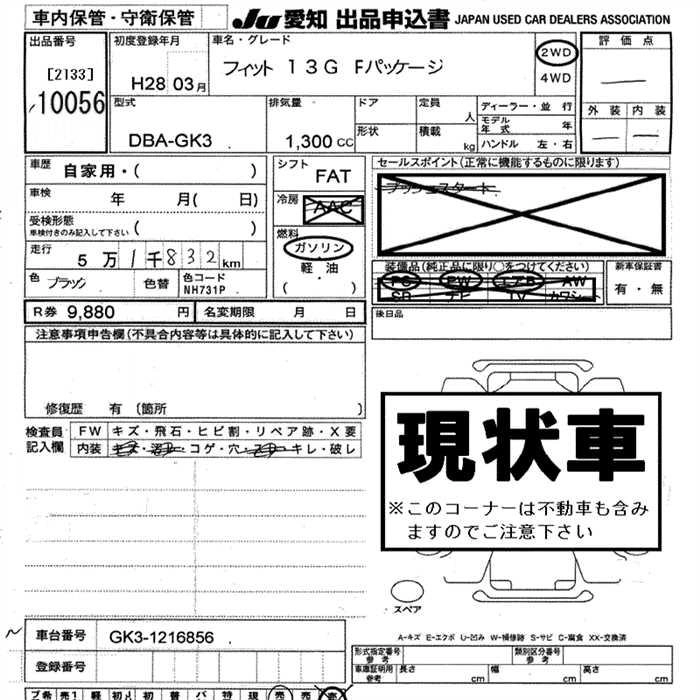 車内保管・守衛保管 JU 愛知 出品申込書 JAPAN USED CAR DEALERS ASSOCIATION
出品番号 初度登録年月 車名・グレード 評価点
[2133] H28 03月 フィット 13G Fパッケージ 2WD
10056 4WD
外装 内装
型式 排気量 ドア 定員 人 ディーラー・並 行
モデル年式 年
DBA-GK3 1,300 CC 形状 積載 kg ハンドル 左・右
車歴 自家用・( ) シフト FAT セールスポイント(正常に機能するものに限ります)
プッシュスタート
車検 年 月( 日) 冷房 AAC
受検形態
車検付きのみ記入して下さい ( ) 燃料 ガソリン
走行 5万1千832km 軽・油
( )
装備品(純正品に限り○をつけてください) 新車保証書
色 ブラック 色替 色コード NH731P PS PW エアB AW 有・無
SR ナビ TV カワシート
R券 9,880 円 名変期限 月 日 後日品
注意事項申告欄(不具合内容等は具体的に記入して下さい)
修復歴 有 (箇所 )
検査員記入欄 FW キズ・飛石・ヒビ割・リペア跡・X要
内装 キズ・汚れ・コゲ・穴・スレ・キレ・破レ
現状車
※このコーナーは不動車も含み
ますのでご注意下さい
スペア
A-キズ E-エクボ U-凹み W-補修跡 S-サビ C-腐食 XX-交換済
車台番号 GK3-1216856
形式指定番号 参考 類別区分番号 参考
登録番号 車庫証明用 参考 長さ cm 幅 cm 高さ cm